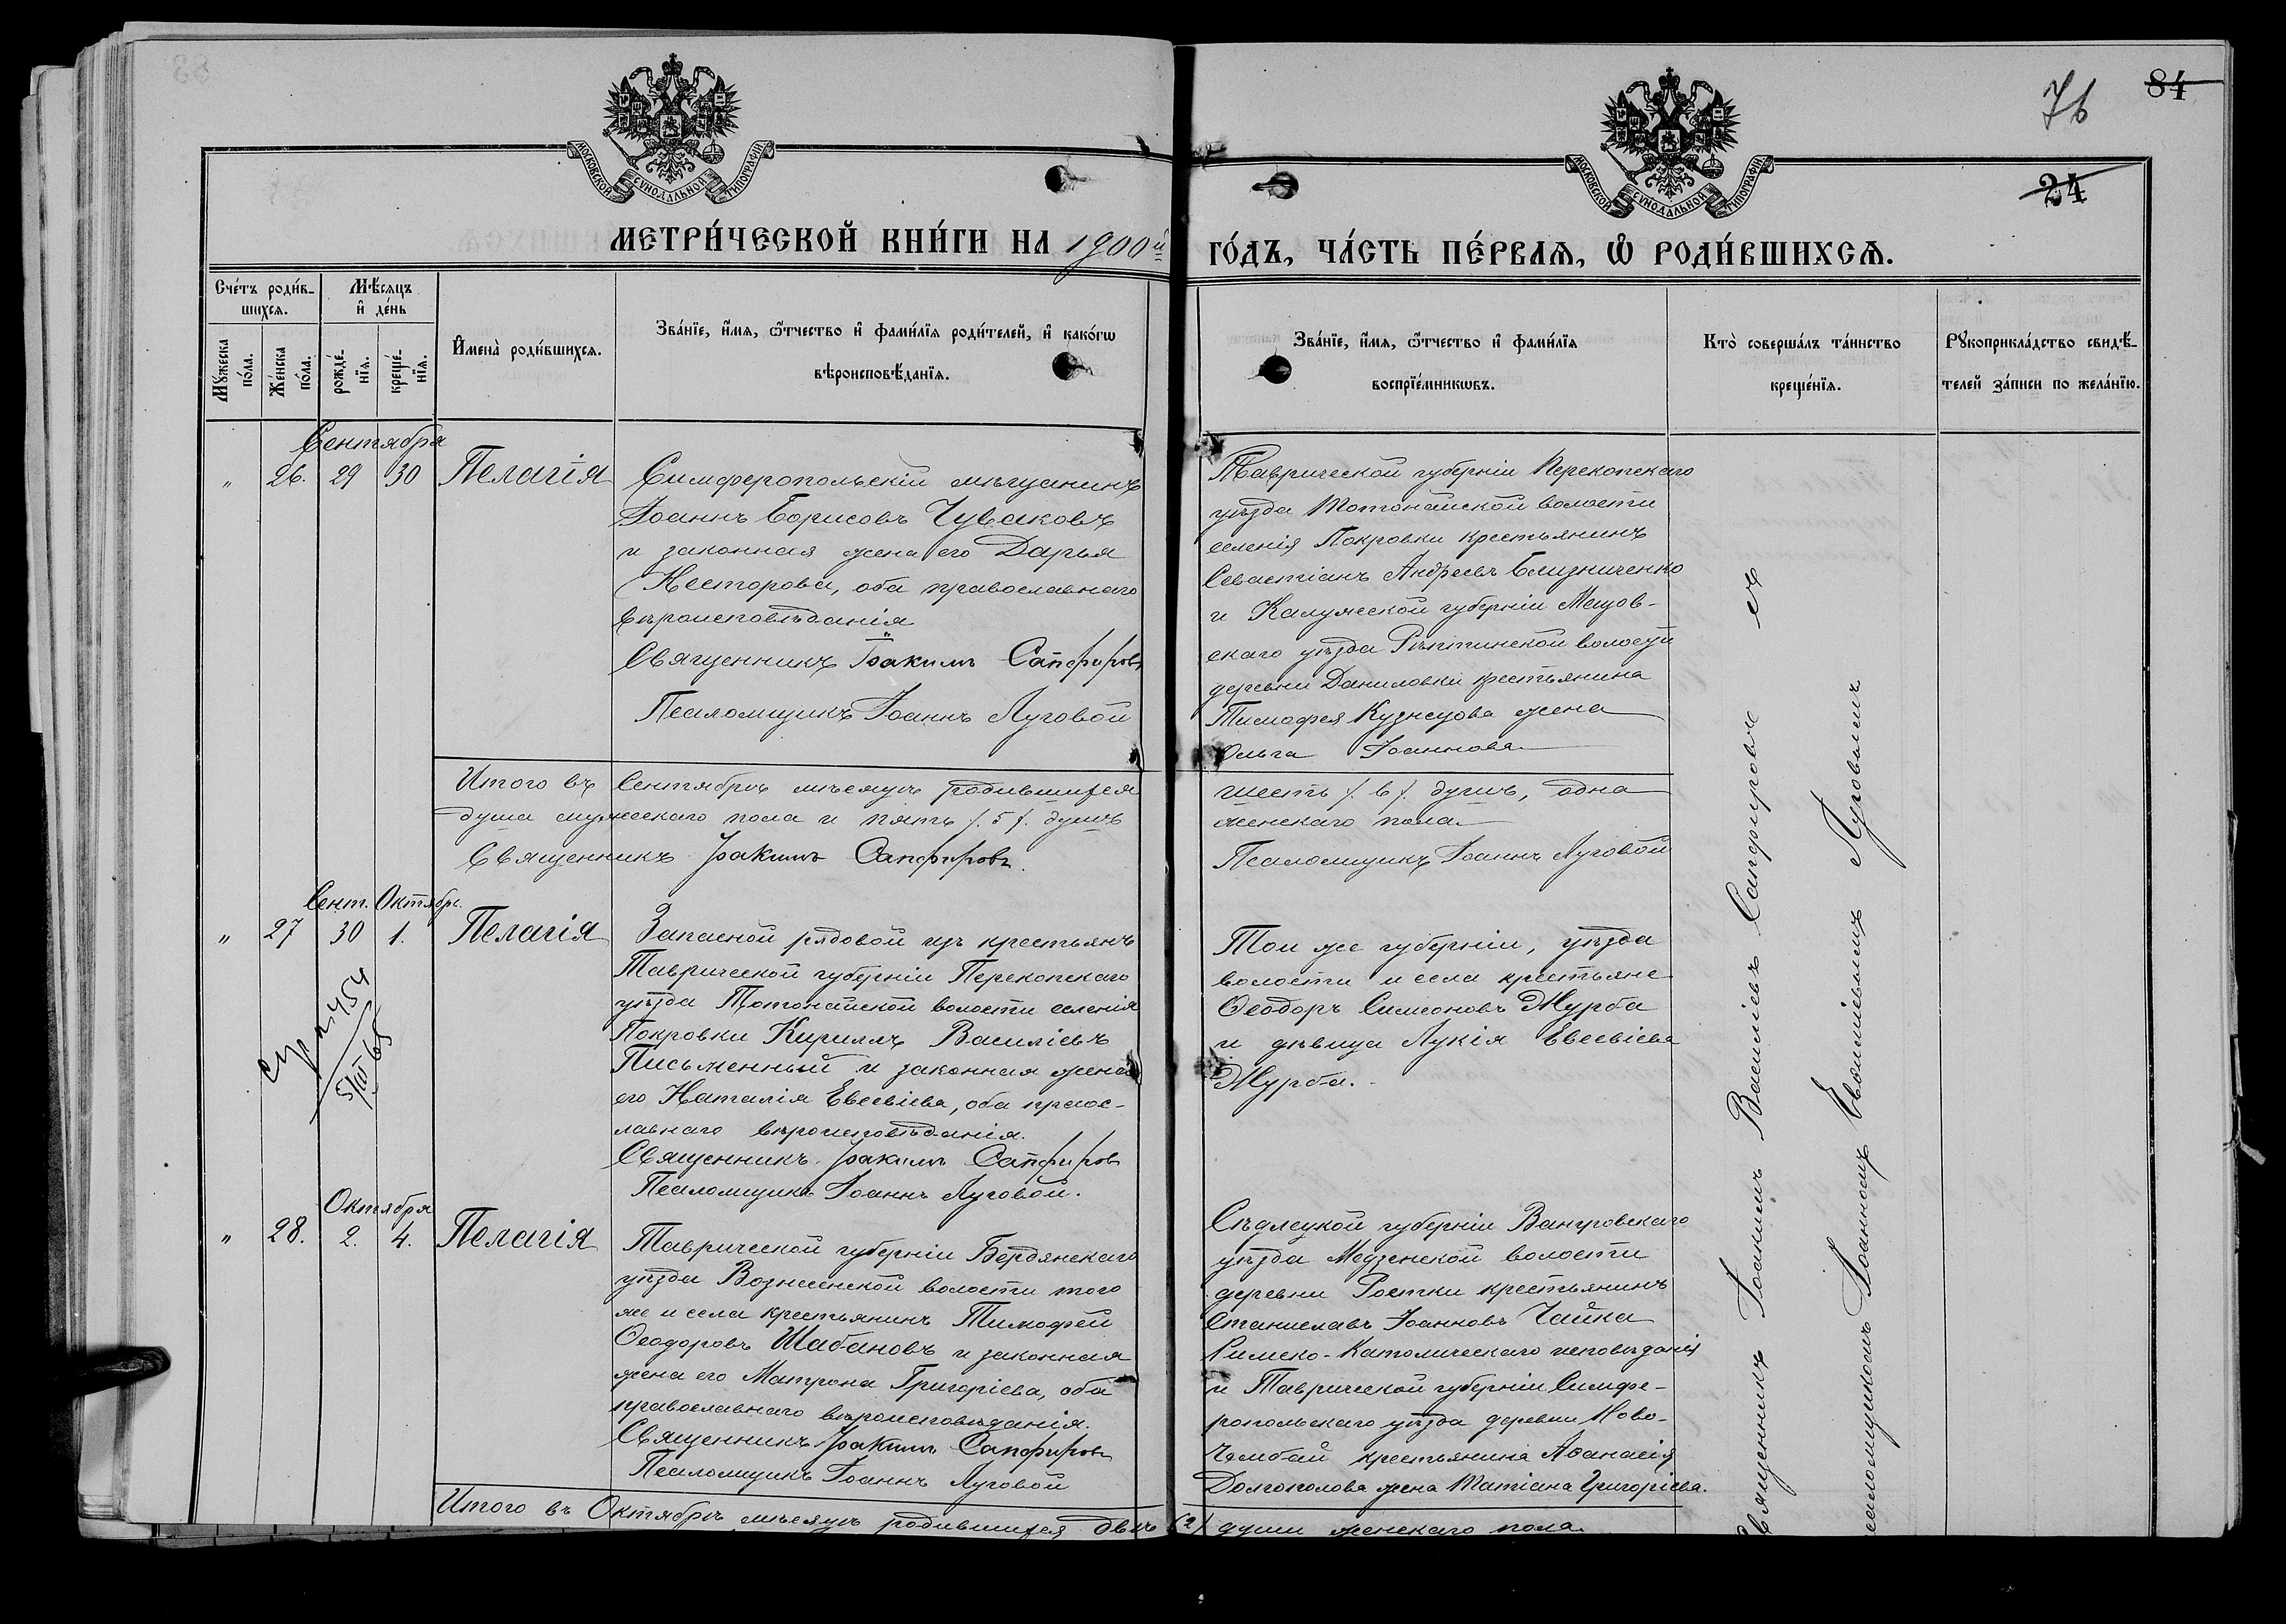 84
76
24
МОСКОВСКОЙ СѴНОДАЛЬНОЙ ТИПОГРАФІИ
МОСКОВСКОЙ СѴНОДАЛЬНОЙ ТИПОГРАФІИ
МЕТРИ́ЧЕСКОЙ КНИ́ГИ НА 1900й ГО́ДЪ, ЧА́СТЬ ПЕ́РВАѦ, Ѡ҆ РОДИ́ВШИХСѦ.
Сче́тъ роди́вшихсѧ.
Мꙋ́жеска по́ла.
Же́нска по́ла.
Мѣ́сяцъ и҆ де́нь
рожде́нїѧ.
креще́нїѧ.
И҆мена̀ роди́вшихсѧ.
Зва́нїе, и҆́мѧ, ѻ҆́тчество и҆ фами́лїѧ роди́телей, и҆ како́гѡ
вѣроисповѣ́данїѧ.
Зва́нїе, и҆́мѧ, ѻ҆́тчество и҆ фами́лїѧ
воспрїе́мникѡвъ.
Кто̀ соверша́лъ та́инство
креще́нїѧ.
Рꙋкоприкла́дство свидѣ́-
телей за́писи по жела́нїю.
Сентября
" 26. 29 30 Пелагія
Симферопольскій мѣщанинъ
Іоаннъ Борисовъ Чуваковъ
и законная жена его Дарья
Несторова, оба православнаго
вѣроисповѣданія
Священникъ Іоакимъ Сапфировъ
Псаломщикъ Іоаннъ Луговой
Таврической губерніи Перекопскаго
уѣзда Тотонайской волости
селенія Покровки крестьянинъ
Севастіанъ Андреевъ Близниченко
и Калужской губерніи Мещов-
скаго уѣзда волости
деревни Даниловки крестьянина
Тимофея Кузнецова жена
Ольга Іоаннова
Итого въ Сентябрѣ мѣсяцѣ родившихся шесть /.6/. душъ, одна
душа мужескаго пола и пять /.5/. душъ женскаго пола
Священникъ Іоакимъ Сапфировъ.
Псаломщикъ Іоаннъ Луговой
Сент. Октябр.
" 27 30 1. Пелагія
454
5/III 65
Запасной рядовой изъ крестьянъ
Таврической губерніи Перекопскаго
уѣзда Тотонайской волости селенія
Покровки Кириллъ Василіевъ
Письменный и законная жена
его Наталія Евсевіева, оба правос-
лавнаго вѣроисповѣданія.
Священникъ Іоакимъ Сапфировъ
Псаломщикъ Іоаннъ Луговой.
Той же губерніи, уѣзда
волости и села крестьяне
Ѳеодоръ Симеоновъ Журба
и дѣвица Лукія Евсевіева
Журба.
Октября
" 28. 2. 4. Пелагія
Таврической губерніи Бердянскаго
уѣзда Вознесенской волости того
же и села крестьянинъ Тимофей
Ѳеодоровъ Шабановъ и законная
жена его Матрона Григоріева, оба
православнаго вѣроисповѣданія.
Священникъ Іоакимъ Сапфировъ
Псаломщикъ Іоаннъ Луговой
Сѣдлецкой губерніи Венгровскаго
уѣзда Медзенской волости
деревни Ростки крестьянинъ
Станиславъ Іоанновъ Чайка
Римско-Католическаго исповѣданія
и Таврической губерніи Симфе-
ропольскаго уѣзда деревни Ново-
Чембай крестьянина Аѳанасія
Долгополова жена Татіана Григоріева.
Итого въ Октябрѣ мѣсяцѣ родившихся двѣ (2) души женскаго пола.
Священникъ Іоакимъ Василіевъ Сапфировъ съ
псаломщикомъ Іоанномъ Луговымъ